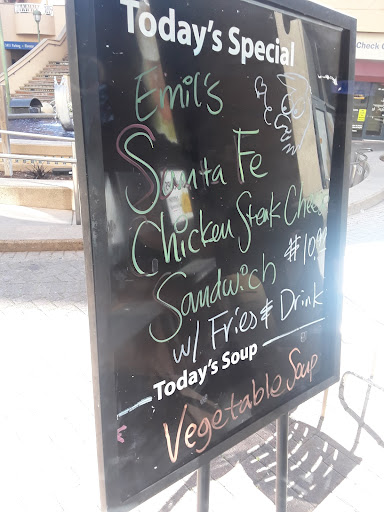 Today's Special
Emil's
Santa Fe
Chicken Steak Cheese
Sandwich $10.99
w/ Fries & Drink
Today's Soup
Vegetable Soup
Check C